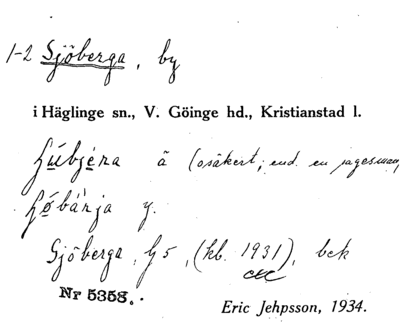 1-2 Sjöberga, by
i Häglinge sn., V. Göinge hd., Kristianstad l.
ʃúbjéna ä (osäkert; end. en sagesman)
ʃøbánja y.
Sjöberga, G5, (kb. 1931), bek
Nr 5353.
Eric Jehpsson, 1934.